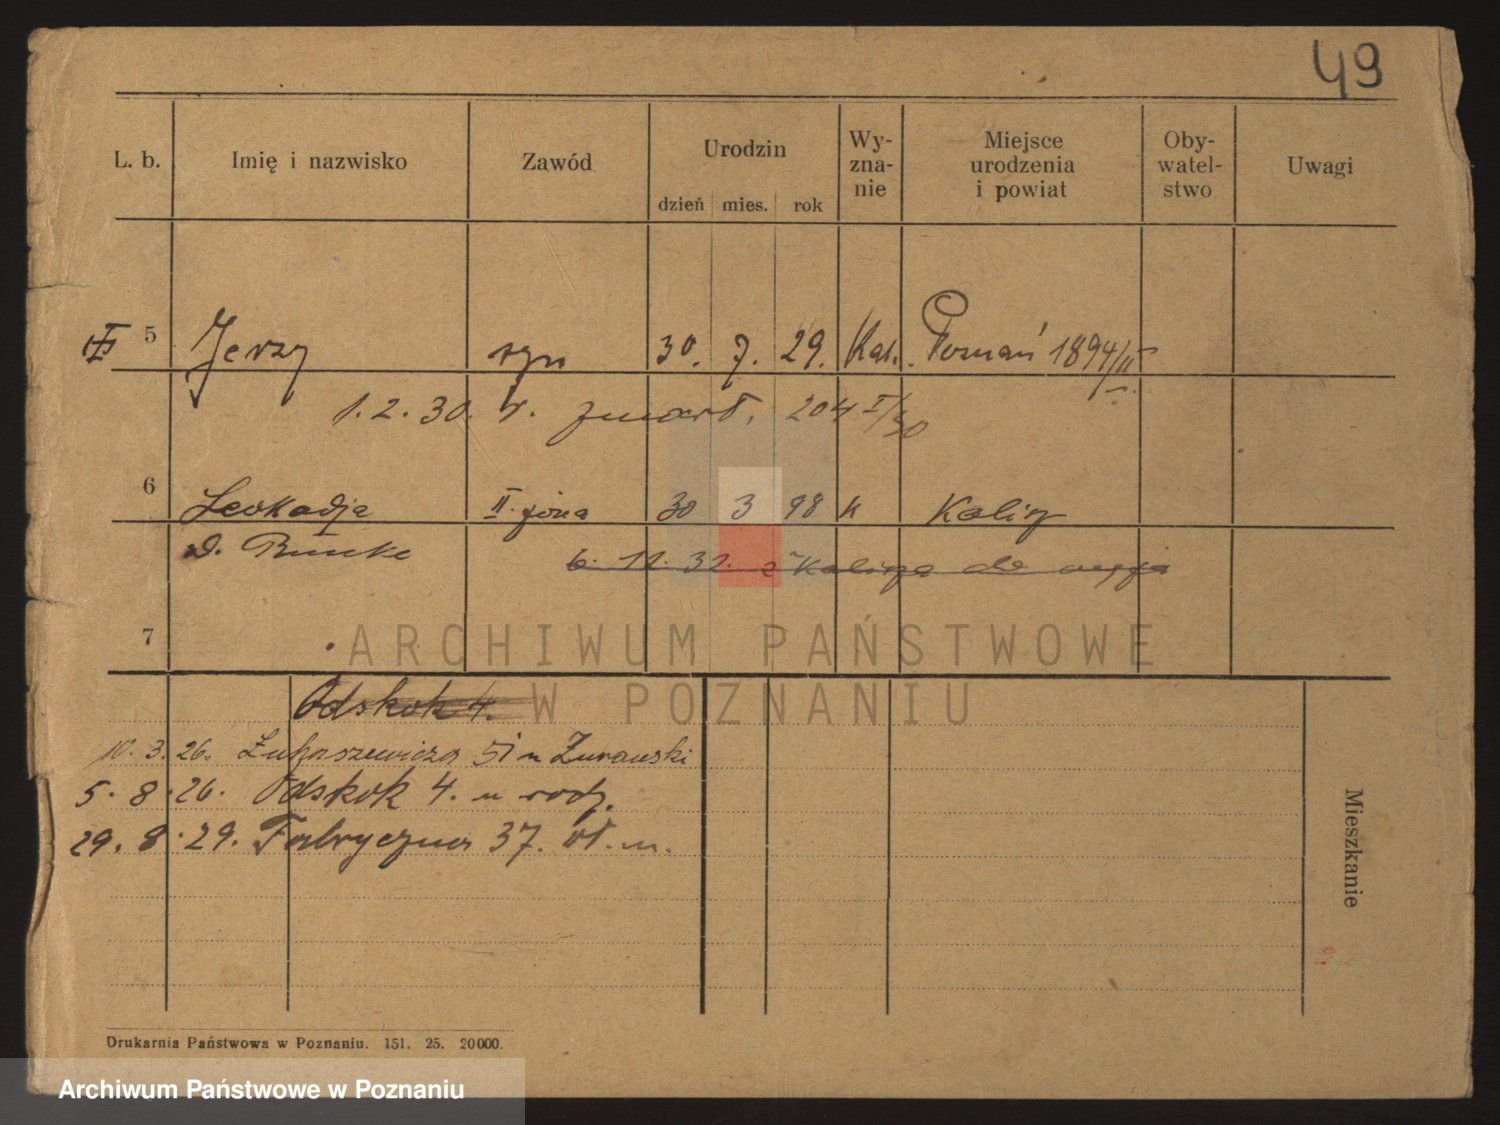 49
L. b. Imię i nazwisko Zawód Urodzin Wy-zna-nie Miejsce urodzenia i powiat Oby-watel-stwo Uwagi
dzień mies. rok
5 Jerzy syn 30. 7. 29. Kat. Poznań 1894/II
1. 2. 30. r. zmarł. 204 I/30
6 Leokadja II. żona 30 3 98 k Kalisz
d.
6. 11. 31. z Kalisza do
7
ARCHIWUM PAŃSTWOWE
W POZNANIU
Odskok 4.
10. 3. 26. Łukaszewicza 51 u Żurawski
5. 8. 26. Odskok 4. u rodz.
29. 8. 29. Fabryczna 37. wł. m.
Mieszkanie
Drukarnia Państwowa w Poznaniu. 151. 25. 20000.
Archiwum Państwowe w Poznaniu